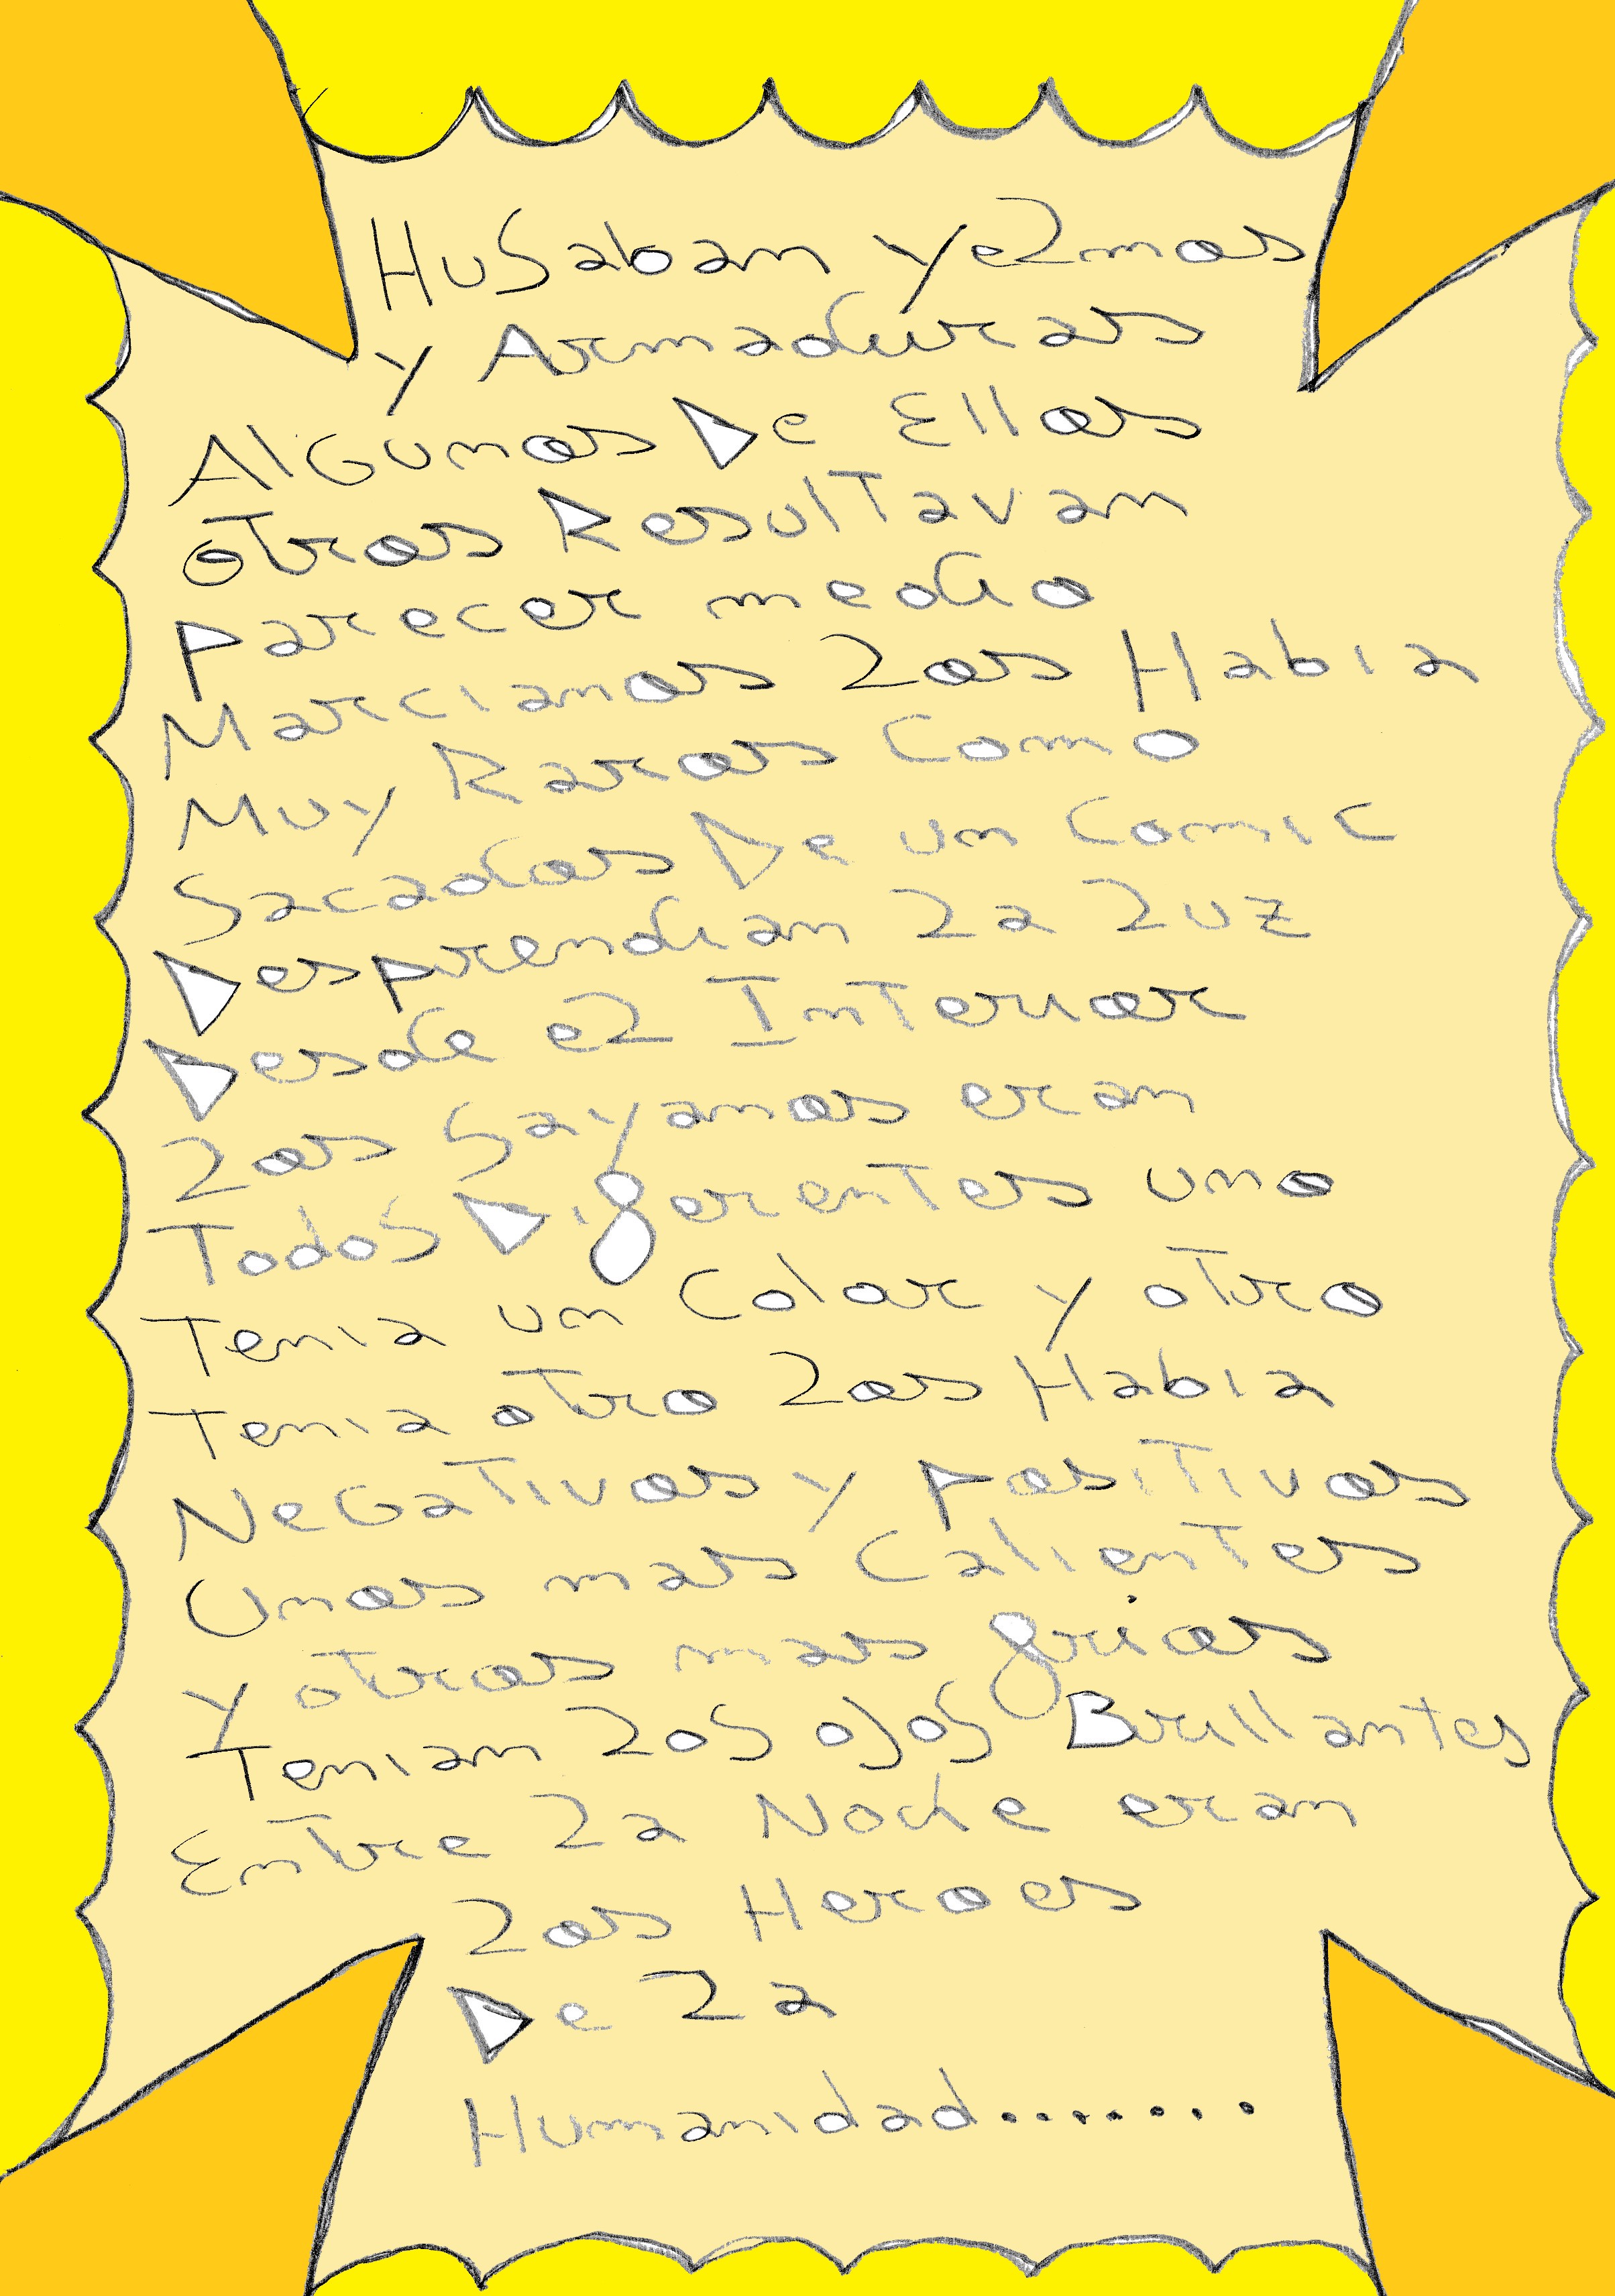 HuSaban yelmos
y Armaduras
AlGunos De Ellos
otros ResulTavan
parecer medio
Marcianos los Habia
Muy Raros Como
Sacados De un Comic
Desprendian la luz
Desde el InTerior
los Sayanos eran
TodoS DiferenTes uno
Tenia un Color y oTro
Tenia oTro los Habia
NeGaTivos y posiTivos
Unos mas CalienTes
y oTros mas frios
Tenian loS oJoS Brillantes
EnTre la Noche eran
los Heroes
De la
Humanidad........